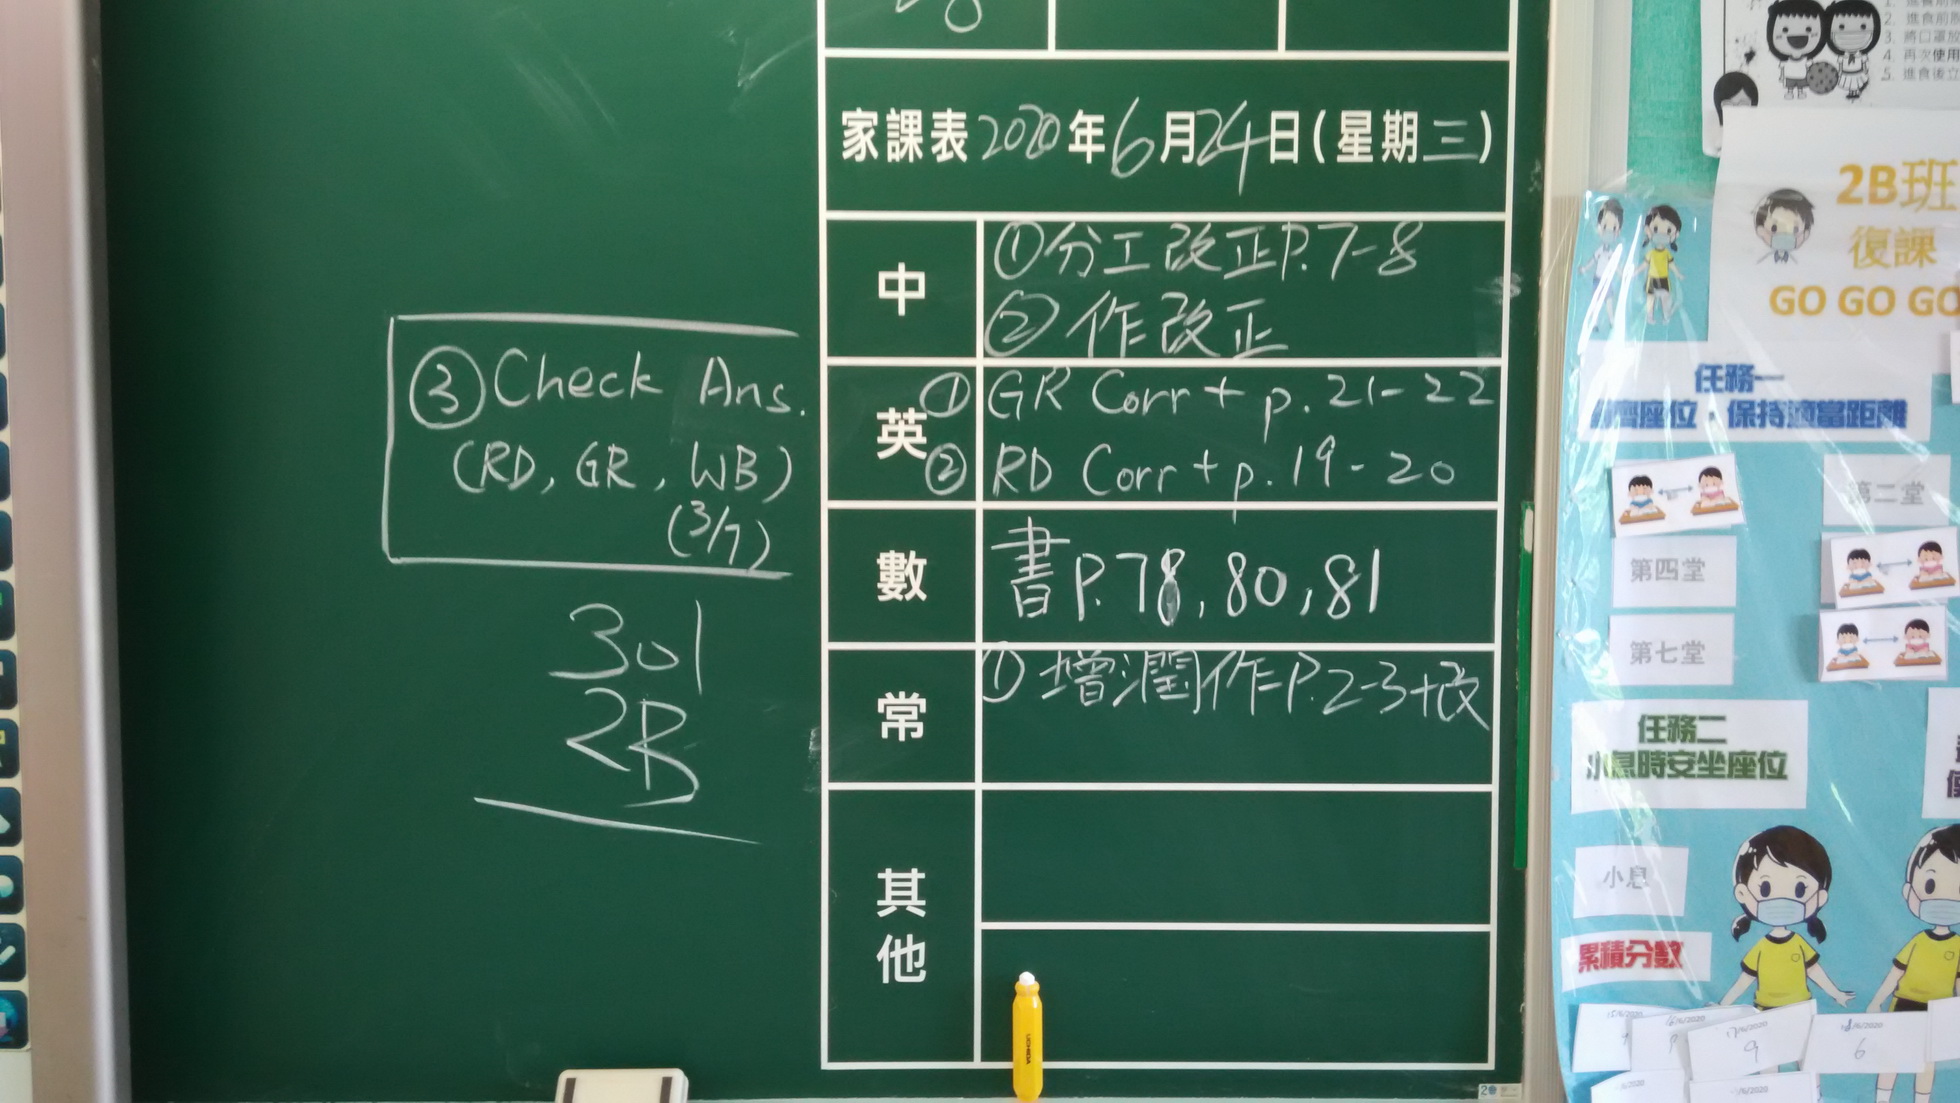 家課表2020年6月24日(星期三)
中
①分工改正P.7-8
②作改正
英
① GR Corr + p.21-22
② RD Corr + p.19-20
③ Check Ans.
(RD, GR, WB)
(3/7)
數
書P.78, 80, 81
常
① 增潤作P.2-3+改
其他
301
2B
2B班
復課
GO GO GO
任務一
座位，保持適當距離
第二堂
第四堂
第七堂
任務二
小息時安坐座位
小息
累積分數
15/6/2020
16/6/2020
17/6/2020
9
18/6/2020
6
UCHIDA